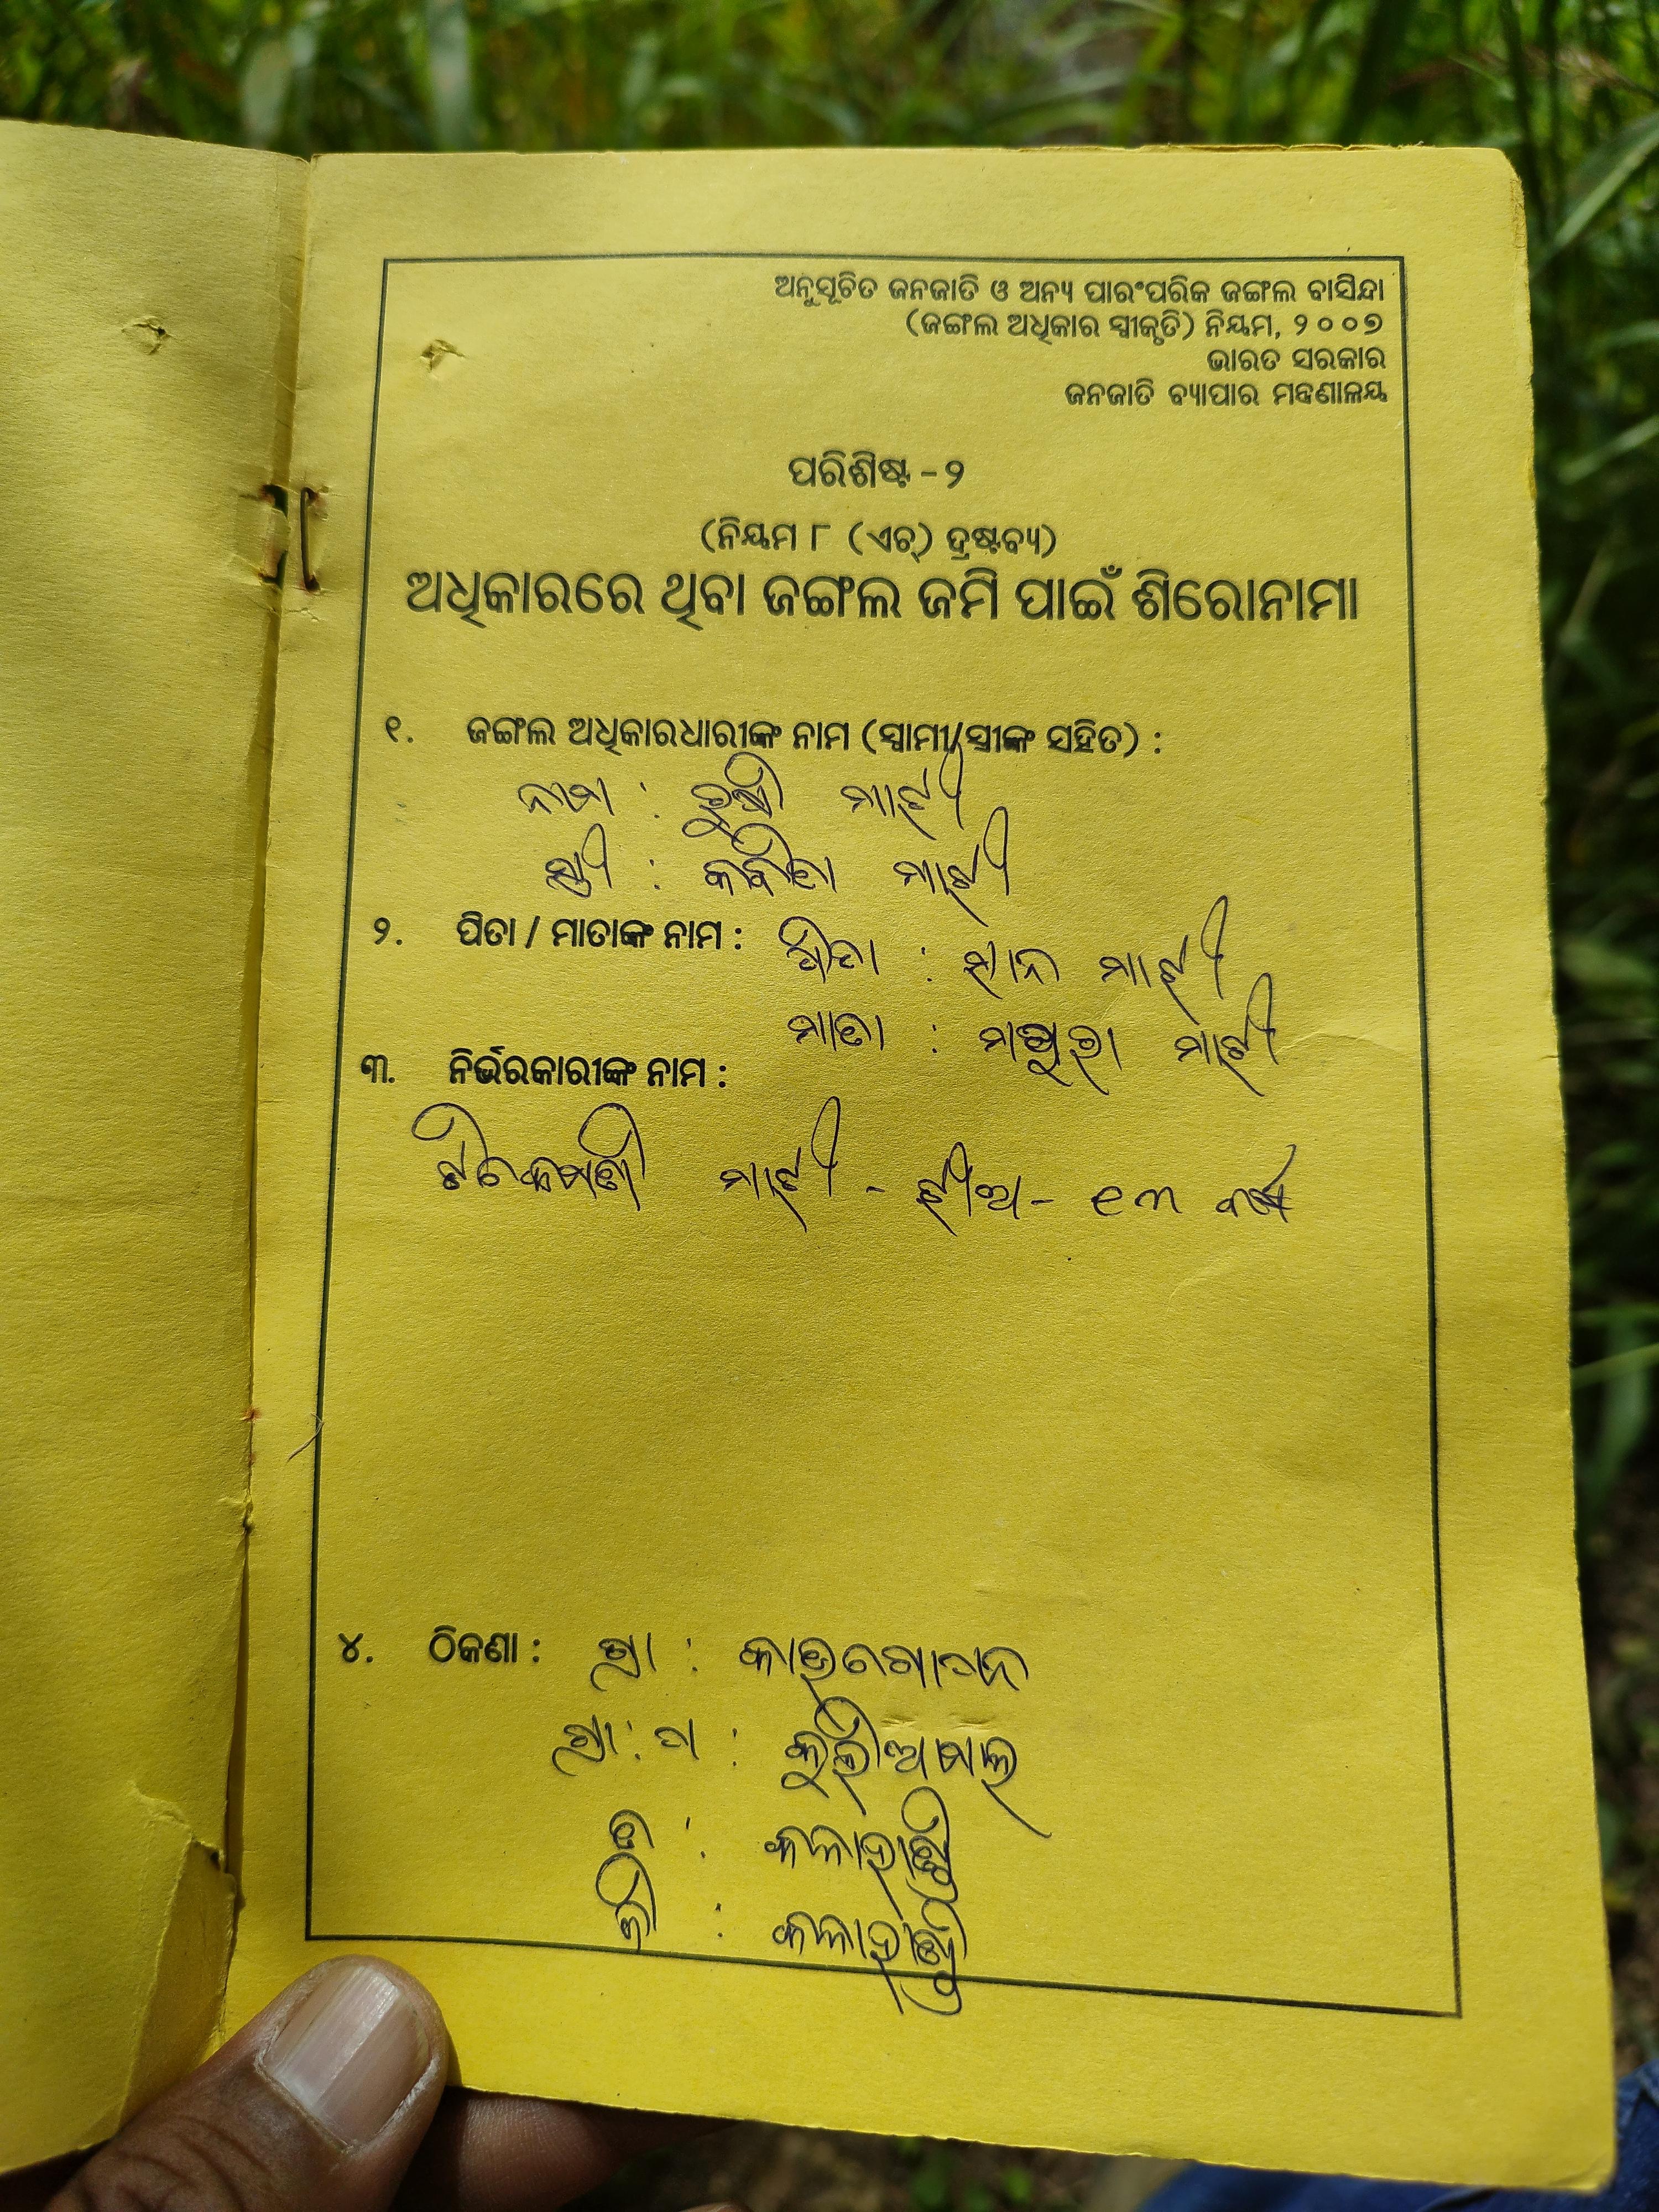 ଅନୁସୂଚିତ ଜନଜାତି ଓ ଅନ୍ୟ ପାରଂପରିକ ଜଙ୍ଗଲ ବାସିନ୍ଦା
(ଜଙ୍ଗଲ ଅଧିକାର ସ୍ୱୀକୃତି) ନିୟମ, ୨୦୦୭
ଭାରତ ସରକାର
ଜନଜାତି ବ୍ୟାପାର ମନ୍ତ୍ରଣାଳୟ
ପରିଶିଷ୍ଟ - ୨
(ନିୟମ ୮ (ଏଚ୍) ଦ୍ରଷ୍ଟବ୍ୟ)
ଅଧିକାରରେ ଥିବା ଜଙ୍ଗଲ ଜମି ପାଇଁ ଶିରୋନାମା
୧. ଜଙ୍ଗଲ ଅଧିକାରଧାରୀଙ୍କ ନାମ (ସ୍ୱାମୀ/ସ୍ତ୍ରୀଙ୍କ ସହିତ) :
ନାମ : ମାଝୀ
ସ୍ତ୍ରୀ : କବିତା ମାଝୀ
୨. ପିତା / ମାତାଙ୍କ ନାମ : ପିତା : ମାଝୀ
ମାତା : ମାଝୀ
୩. ନିର୍ଭରକାରୀଙ୍କ ନାମ :
ମାଝୀ - ଝିଅ - ୧୩ ବର୍ଷ
୪. ଠିକଣା : ଗ୍ରା :
ଗ୍ରା : ପ :
ବ୍ଲ : କଳାହାଣ୍ଡି
ଜି : କଳାହାଣ୍ଡି